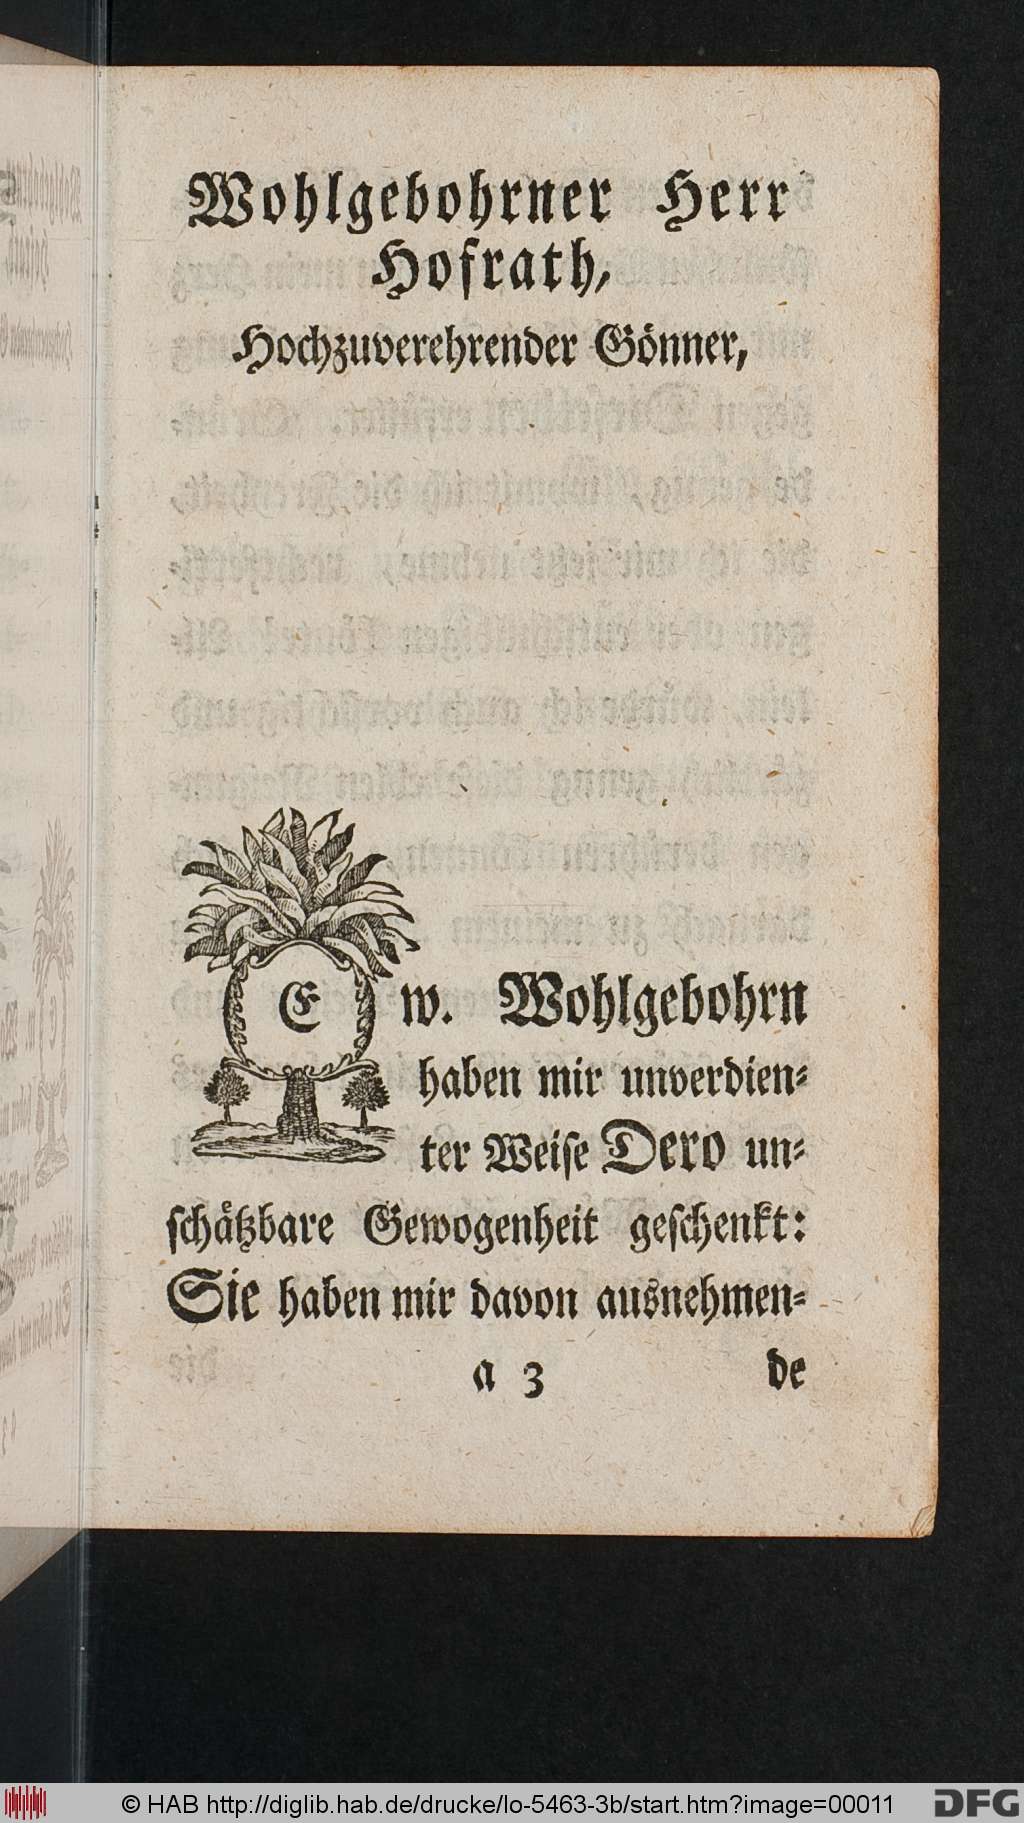 Wohlgebohrner Herr
Hofrath,
Hochzuverehrender Gönner,
Ew. Wohlgebohrn
haben mir unverdien-
ter Weiſe Dero un-
ſchaͤtzbare Gewogenheit geſchenkt:
Sie haben mir davon ausnehmen-
a 3 de
© HAB http://diglib.hab.de/drucke/lo-5463-3b/start.htm?image=00011 DFG